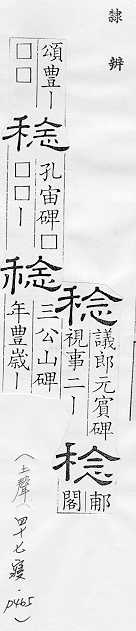 隸辨
稔
議郎元賓碑
視事二丨
稔
郙
閣
頌豊丨
□□
稔
孔宙碑□
□□丨
稔
三公山碑
年豊歳丨
(上聲 四十七寑.p465)